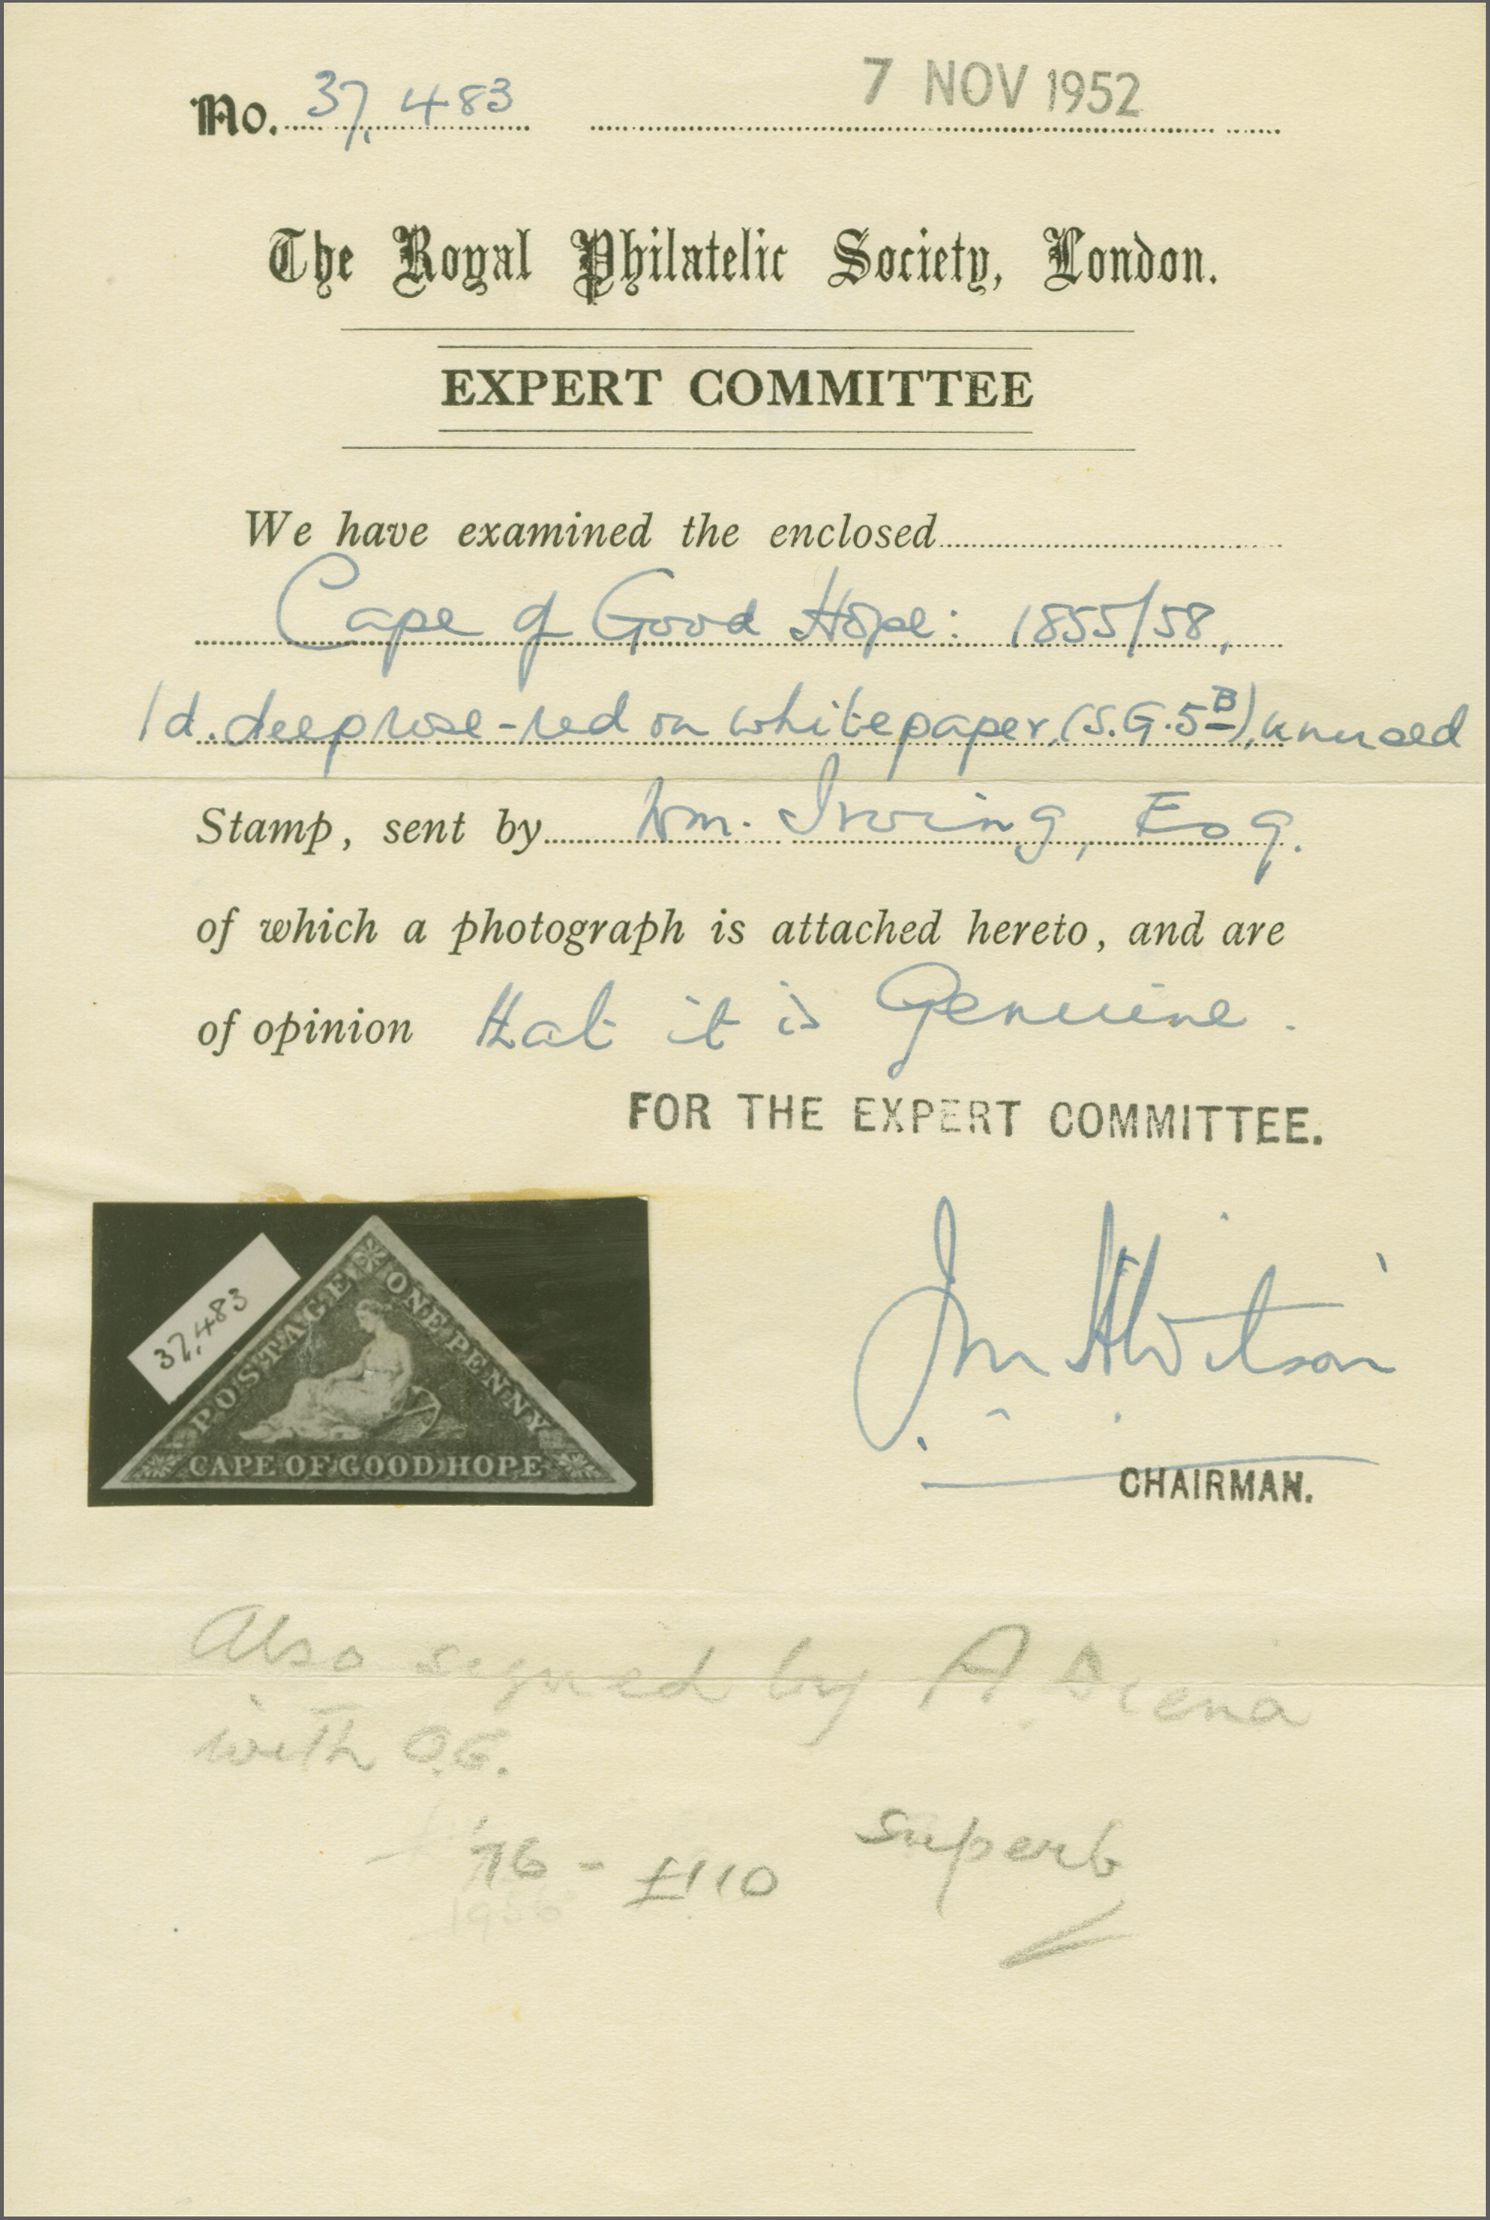 No. 37,483
7 NOV 1952
The Royal Philatelic Society, London.
EXPERT COMMITTEE
We have examined the enclosed
Cape of Good Hope: 1855/58,
1d. deep rose-red on white paper, (S.G. 5B), unused
Stamp, sent by Wm. Irving, Esq.
of which a photograph is attached hereto, and are
of opinion that it is Genuine.
FOR THE EXPERT COMMITTEE.
37,483
POSTAGE
ONE PENNY
CAPE OF GOOD HOPE
CHAIRMAN.
Also signed by A. Diena
with O.G.
'76 - £110 superb